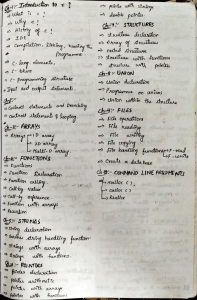 Ch-1:- Introduction to C :
→ What is C ?
→ Why C ?
→ History of C :
→ IDE
→ Compilation, linking, running the
Programme
→ C- Tokens, elements.
→ C- programming structure
→ Input and output statement
Control statement and
Control statement & looping
Ch-3:- ARRAYS
→ Arrays → 1D array
→ 2D array
→ Multi-D array
Ch-4:- FUNCTIONS
→ Functions
→ Function Declaration
→ Function calling
→ Call by value
→ Call by reference
→ Function with arrays
→ Recursion
Ch-5:- STRINGS
→ String declaration
→ string handling function
→ Strings with arrays
→ Strings with functions
POINTERS
→ Pointer declaration
→ Pointer arithmetic
→ Pointers with arrays
→ Pointer with functions
→ Pointer with strings
→ double pointer
Ch-7:- STRUCTURES
→ Structure declaration
→ Array of structures
→ nested structure
→ Structures with functions
→ Structure with pointers
Ch-8:- UNION
→ Union declaration
→ Programme on union
→ Union within the structure
Ch-9:- FILES
→ File operations
→ File reading
→ File writing
→ File copying
→ File handling functions
→ Create a database
COMMAND LINE ARGUMENTS